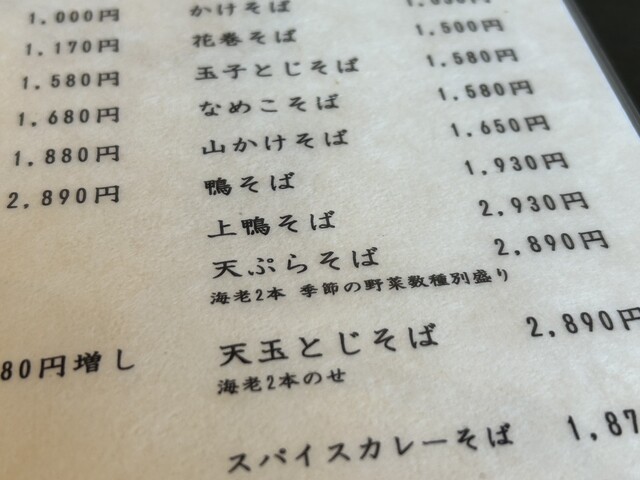 1,000円
1,170円
1,580円
1,680円
1,880円
2,890円
80円増し
かけそば
花巻そば 1,500円
玉子とじそば 1,580円
なめこそば 1,580円
山かけそば 1,650円
鴨そば 1,930円
上鴨そば 2,930円
天ぷらそば 2,890円
海老2本 季節の野菜数種別盛り
天玉とじそば 2,890円
海老2本のせ
スパイスカレーそば 1,87